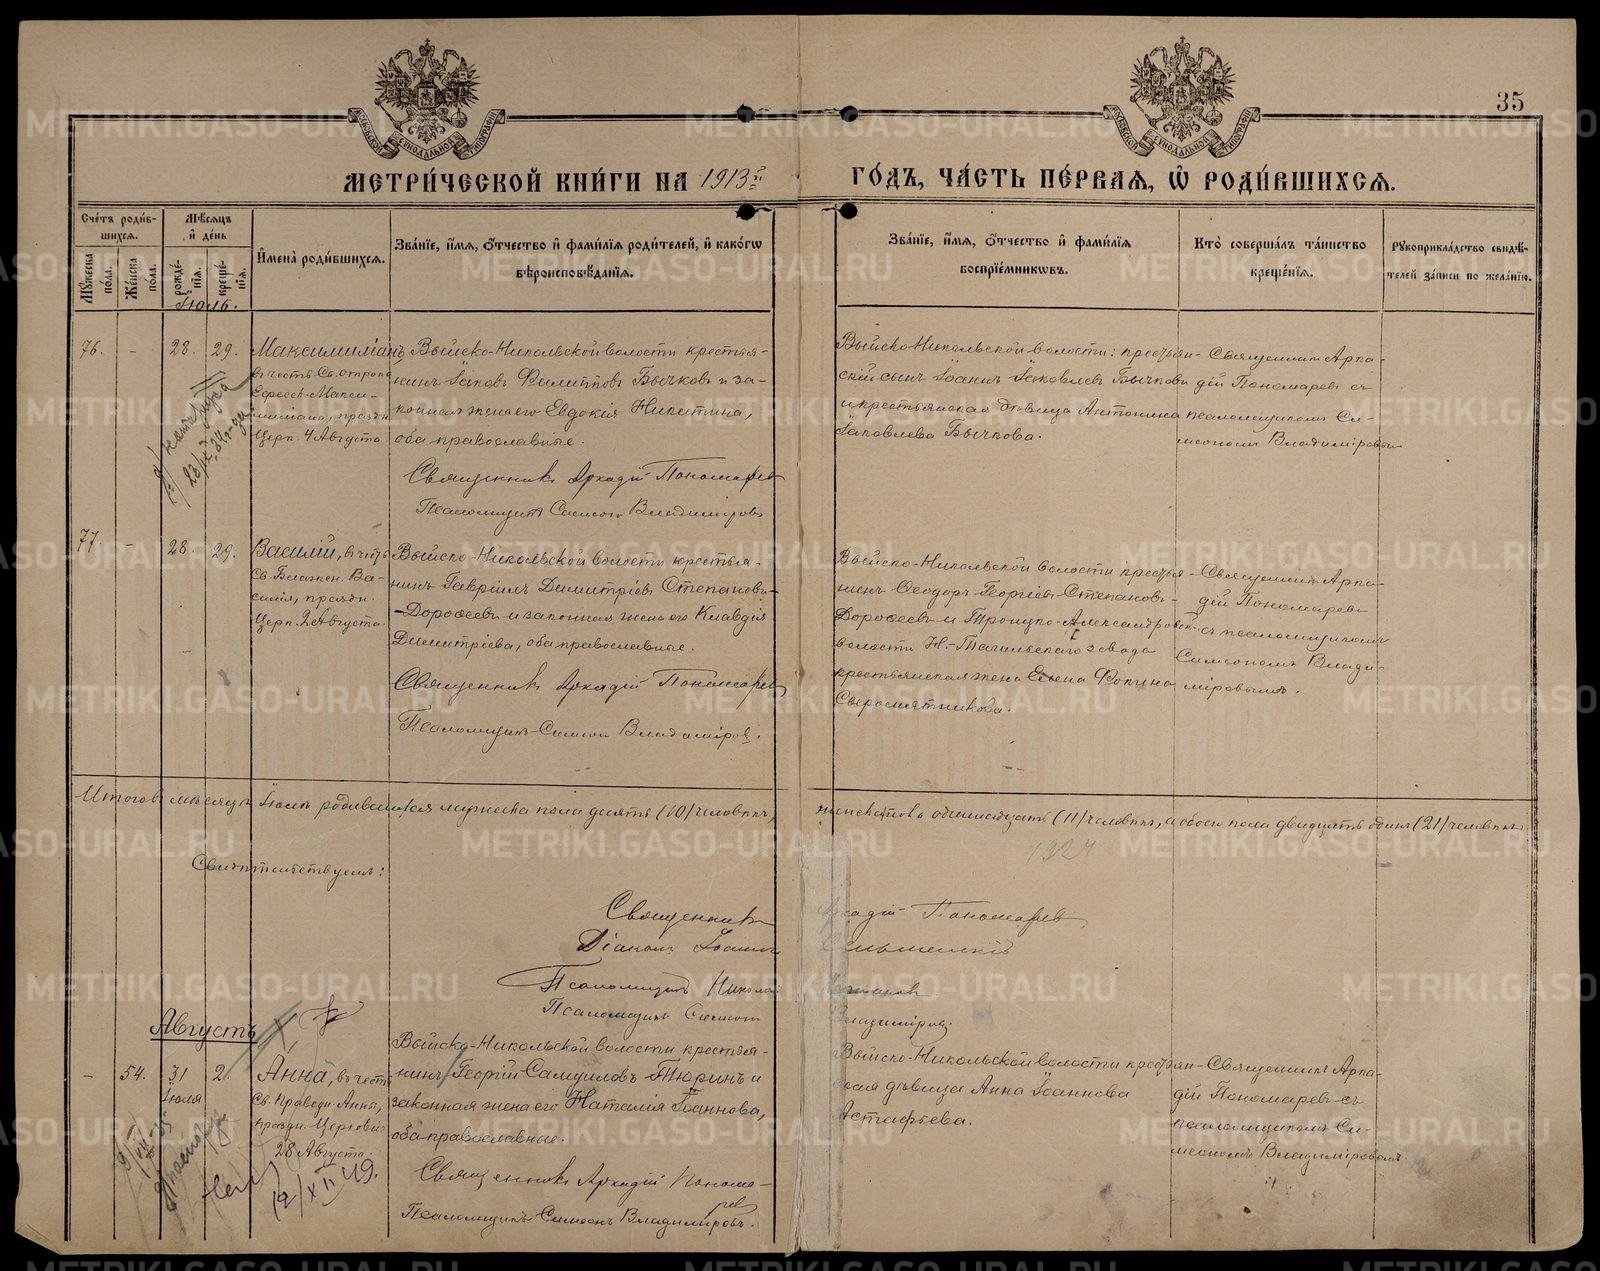 35
МОСКОВСКОЙ СѴНОДАЛЬНОЙ ТИПОГРАФІИ
МОСКОВСКОЙ СѴНОДАЛЬНОЙ ТИПОГРАФІИ
МЕТРИ́ЧЕСКОЙ КНИ́ГИ НА 1913й ГО́ДЪ, ЧА́СТЬ ПЕ́РВАЯ, Ѽ РОДИ́ВШИХСЯ.
Сче́тъ роди́вшихся.
Мꙋ́жеска по́ла.
Же́нска по́ла.
Мѣ́сяцъ и҆ де́нь
рожде́нїя.
креще́нїя.
И҆мена̀ роди́вшихся.
Зва́нїе, и҆́мя, ѻ҆́тчество и҆ фами́лїя роди́телей, и҆ како́гѡ вѣроисповѣ́данїя.
Зва́нїе, и҆́мя, ѻ҆́тчество и҆ фами́лїя воспрїе́мникѡвъ.
Кто̀ соверша́лъ та́инство креще́нїя.
Рꙋкоприкла́дство свидѣ́телей за́писи по жела́нїю.
Іюль.
76. - 28. 29.
Максимиліанъ,
въ честь Св. отрока
Ефесск. Макси-
миліана, праздн.
Церк. 4 Августа
Выйско-Никольской волости крестья-
нинъ Іаковъ Филипповъ Бычковъ и за-
конная жена его Евдокія Никитина,
оба православные.
Священникъ Аркадій Пономаревъ
Псаломщикъ Симеон Владиміровъ
Выйско-Никольской волости: крестьян-
скій сынъ Іоаннъ Іаковлевъ Бычковъ
и крестьянская дѣвица Антонина
Іаковлева Бычкова.
Священникъ Арка-
дій Пономаревъ съ
псаломщикомъ Си-
меономъ Владиміровым
77. - 28. 29.
Василій, въ честь
Св. Блажен. Ва-
силія, праздн.
Церк. 2 Августа.
Выйско-Никольской волости крестья-
нинъ Гавріилъ Димитріевъ Степановъ-
-Дорофеевъ и законная жена его Клавдія
Димитріева, оба православные.
Священникъ Аркадій Пономаревъ
Псаломщикъ Симеон Владиміровъ.
Выйско-Никольской волости крестья-
нинъ Ѳеодоръ Георгіевъ Степановъ-
Дорофеевъ и Троицко-Александровск.
волости Н.-Тагильскаго завода
крестьянская жена Елена Фокина
Сыромятникова.
Священникъ Арка-
дій Пономаревъ
съ псаломщикомъ
Симеономъ Влади-
міровымъ.
Итого въ мѣсяцѣ Іюлѣ родившихся мужеска пола десять (10) человѣкъ, женска пола одиннадцать (11) человѣкъ, а обоего пола двадцать одинъ (21) человѣкъ.
1924
Свидѣтельствуемъ:
Священникъ Аркадій Пономаревъ
Діаконъ Іоаннъ
Псаломщикъ Николай
Псаломщикъ Симеон Владиміровъ.
Августъ
- 54. 31 Іюля 2.
Анна, въ честь
Св. Праведн. Анны,
праздн. Церковію
28 Августа.
12/XII 49.
Выйско-Никольской волости крестья-
нинъ Георгій Самуиловъ Тюринъ и
законная жена его Наталія Іоаннова,
оба православные.
Священникъ Аркадій Понома-
ревъ
Псаломщикъ Симеонъ Владиміровъ.
Выйско-Никольской волости крестьян-
ская дѣвица Анна Іоаннова
Астафьева.
Священникъ Арка-
дій Пономаревъ съ
псаломщикомъ Си-
меономъ Владиміровымъ.
METRIKI.GASO-URAL.RU